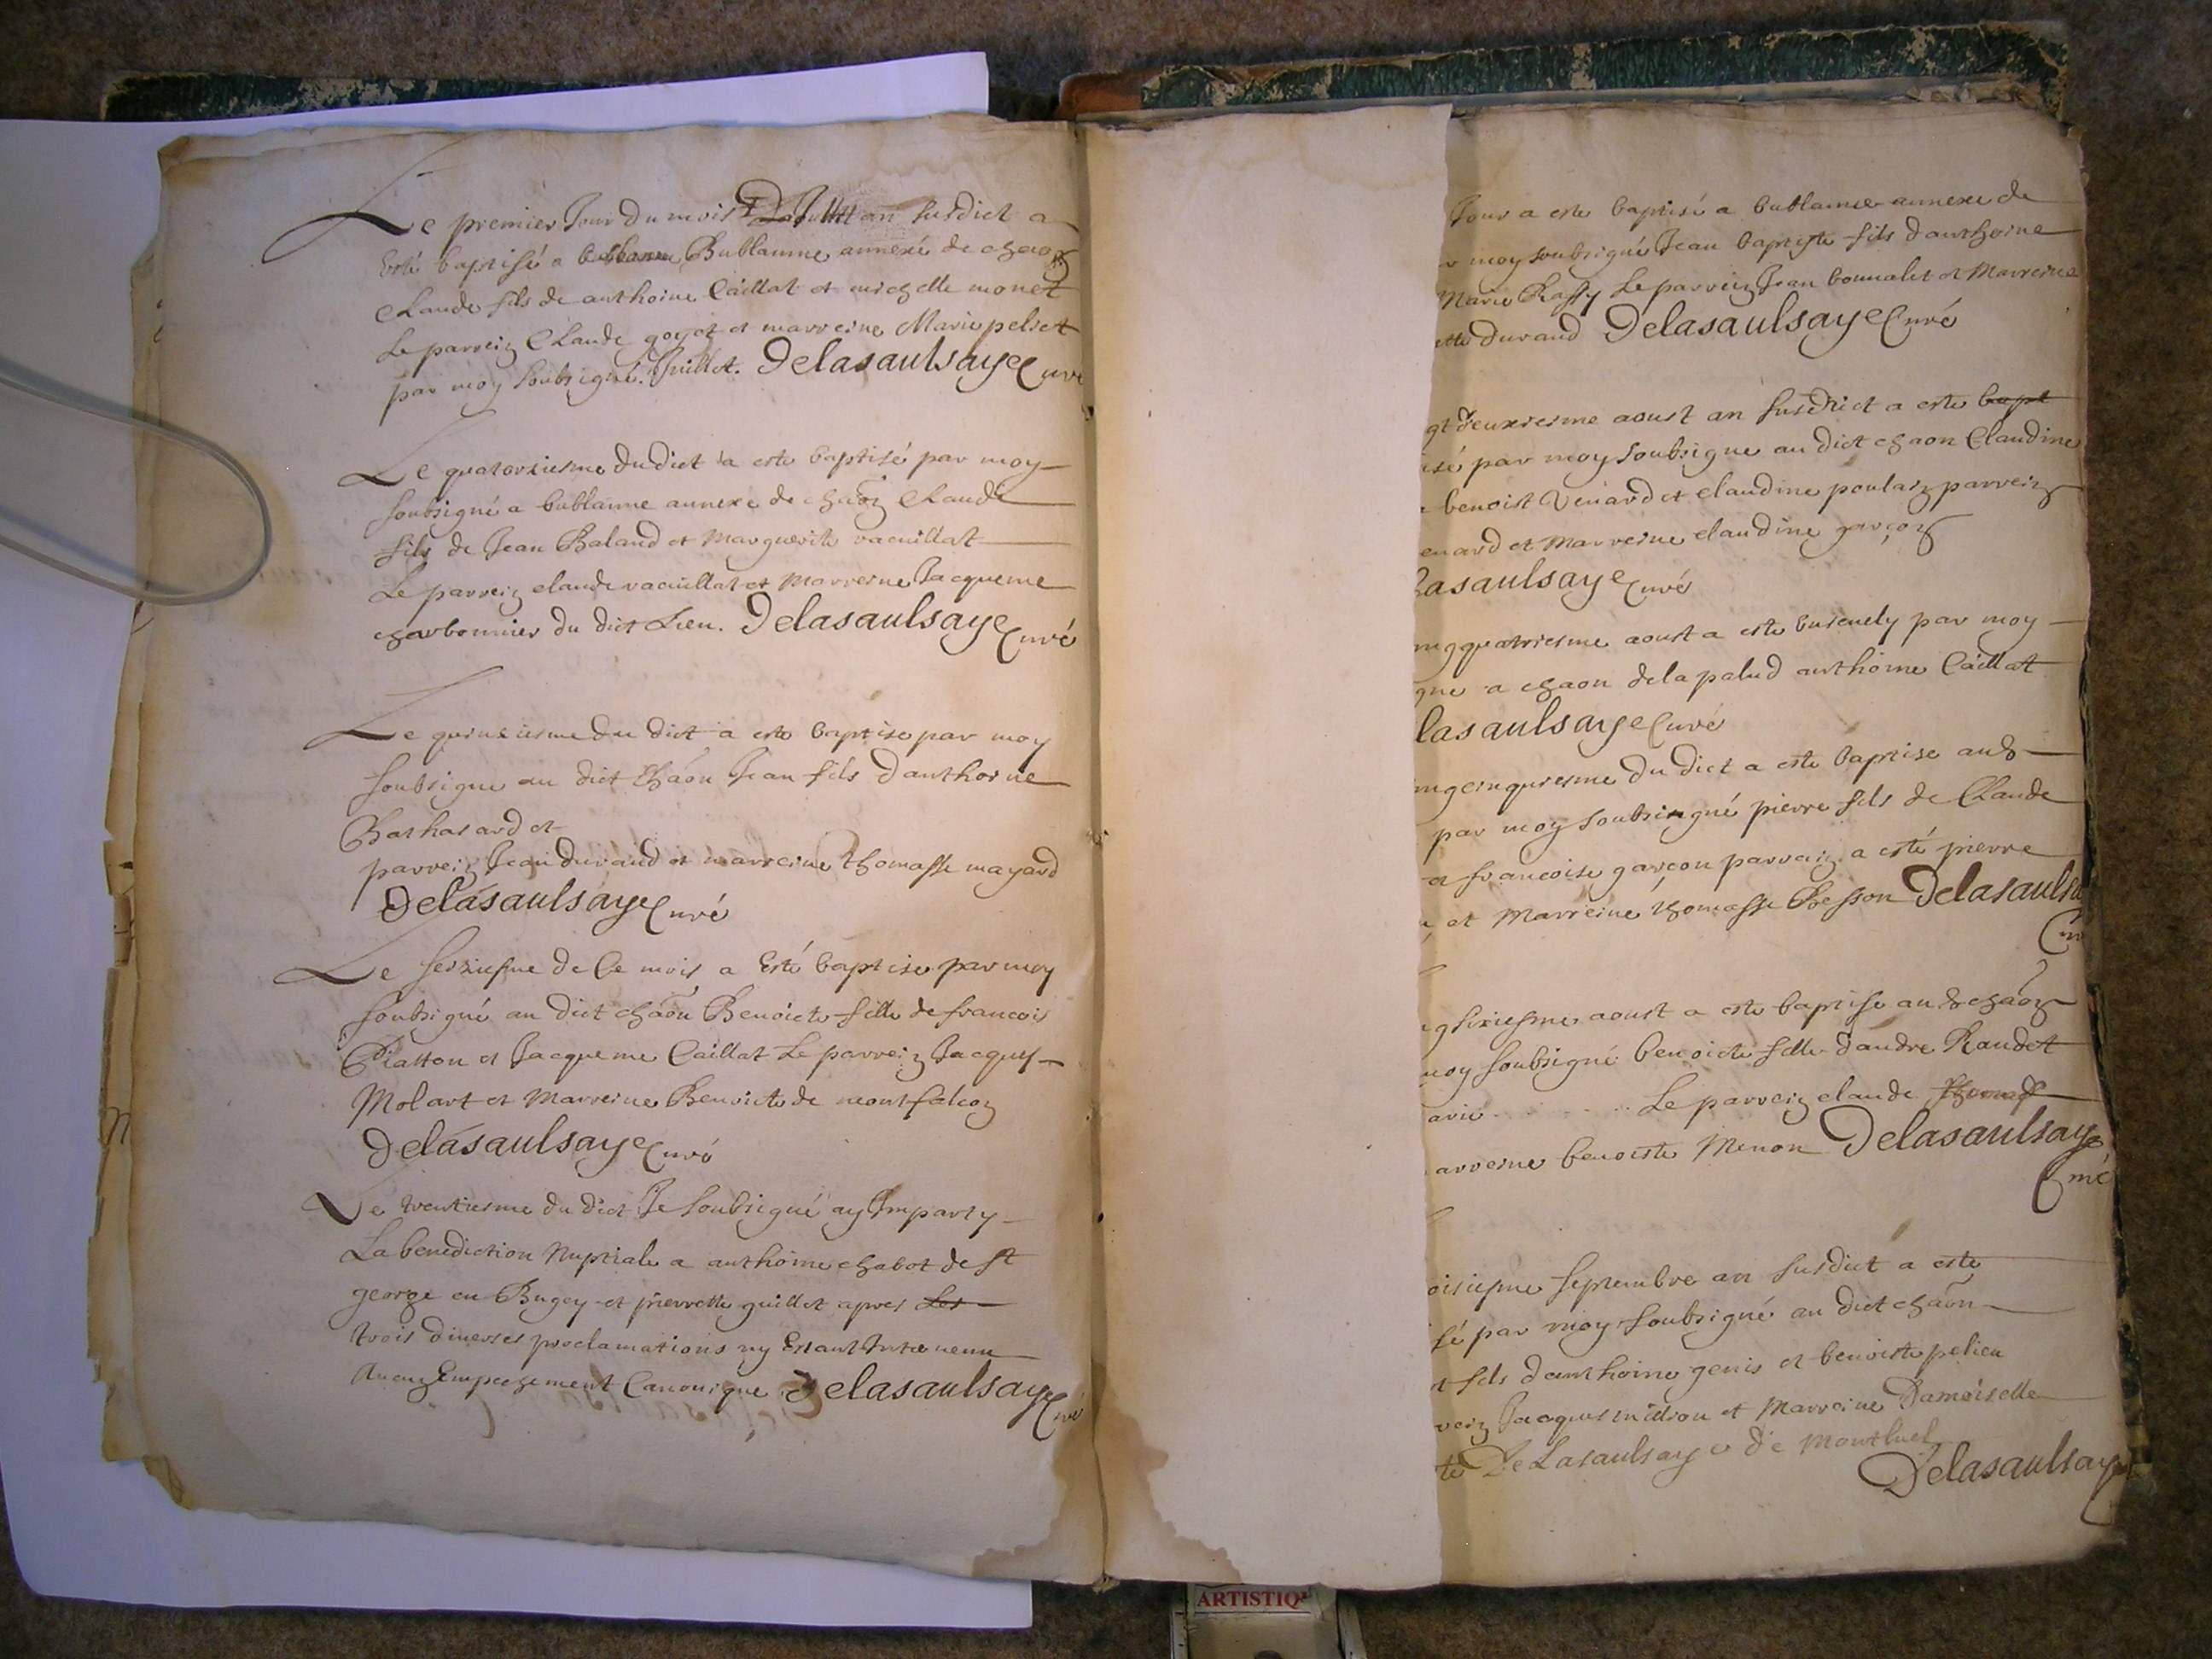 Le premier Jour du mois an susdict a
Esté baptisé a Bublanne annexé de chaon
Claude fils de anthoine Caillat et michelle monet
Le parrein Claude goyet et marreine Marie pelset
par moy soubsigné. Juillet. Delasaulsaye Curé
Le quatorziesme du dict a este baptisé par moy
soubsigné a bublanne annexe de chaon Claude
fils de Jean Baland et Marguerite vacuillat
Le parrein claude vacuillat et Marreine Jacqueme
charbonnier du dict Lieu. Delasaulsaye Curé
Le quinziesme du dict a este baptise par moy
soubsigne au dict chaon Jean fils d'anthoine
Bathasard et
parrein Jean durand et marreine thomasse mayard
Delasaulsaye Curé
Le seiziesme de Ce mois a Esté baptise par moy
soubsigné au dict chaon Benoicte fille de francois
Piatton et Jacqueme Caillat Le parrein Jacques
Molart et Marreine Benoicte de montfalcon
Delasaulsaye Curé
Le trentiesme du dict Je soubsigné ay Imparty
La benediction Nuptiale a anthoine chabot de st
george en Bugey et pierrette guillot apres Les
trois diverses proclamations ny Estant Intervenu
Aucun Empechement Canonique Delasaulsaye Curé
Jour a este baptisé a bublanne annexe de
r moy soubsigné Jean baptiste fils d'anthoine
Marie Le parrein Jean bonnalet et Marreine
ette durand Delasaulsaye Curé
gt deuxiesme aoust an susdict a este bapt
isé par moy soubsigne au dict chaon Claudine
e benoist Venard et claudine poulain parrein
enard et Marreine claudine garçon
lasaulsaye Curé
ng quatriesme aoust a este ensevely par moy
gne a chaon de la palud anthoine Caillat
lasaulsaye Curé
ng cinquiesme du dict a este baptise au d
par moy soubsigné pierre fils de Claude
et francoise garçon parrein a esté pierre
et Marreine thomasse Besson Delasaulsa
Cur
g sixiesme aoust a este baptise au d chaon
moy soubsigné benoicte fille d'andre Raudet
arie Le parrein claude
arreine benoiste Menon Delasaulsaye
Curé
oisiesme septembre an susdict a este
sé par moy soubsigné au dict chaon
t fils d'anthoine genis et benoiste pelien
rein Jacques million et Marreine Damoiselle
te De Lasaulsaye de Montluel
Delasaulsaye
ARTISTIQ